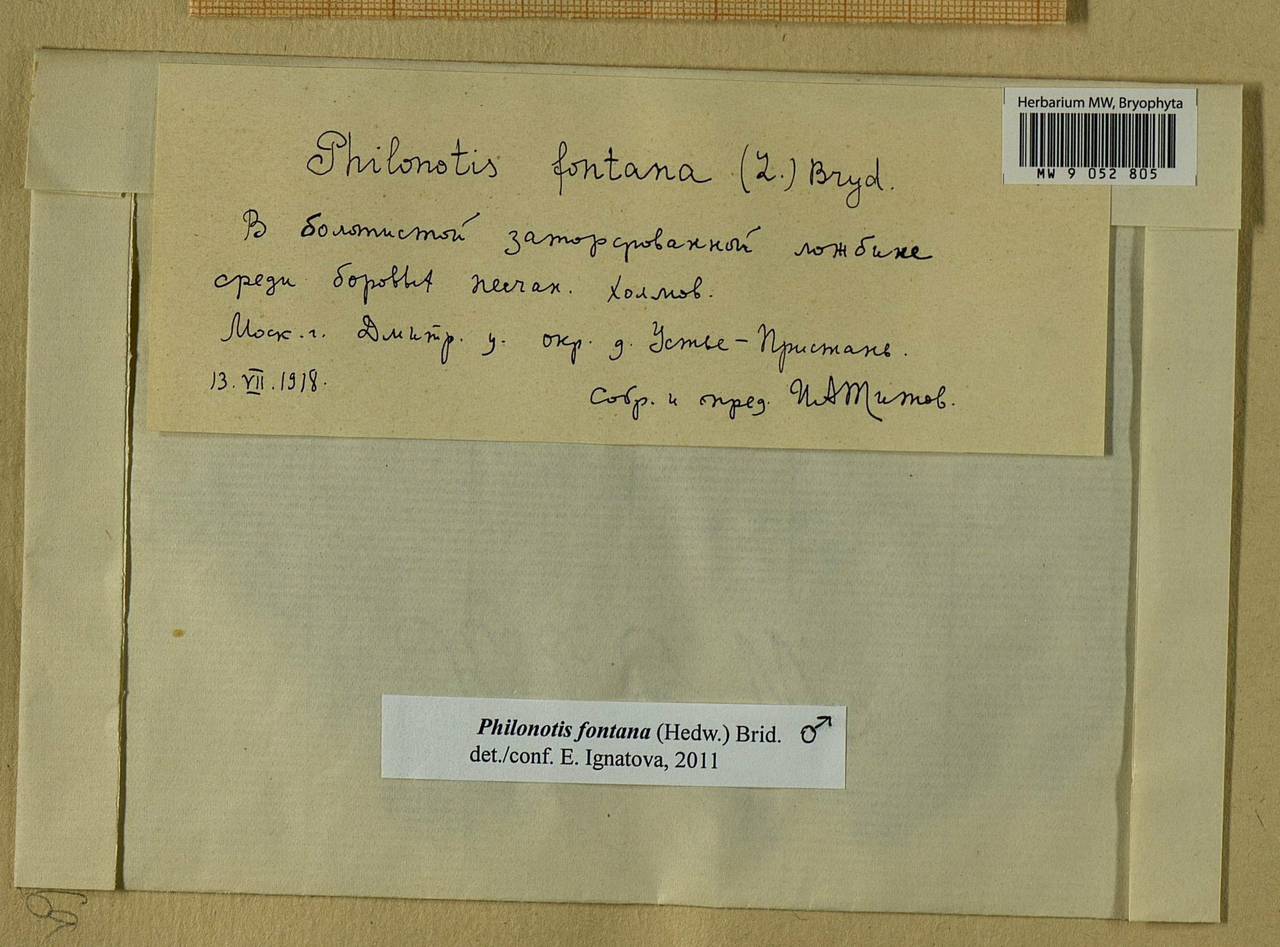 Herbarium MW, Bryophyta
MW 9 052 805
Philonotis fontana (L.) Bryd.
В болотистой заторфованной ложбине
среди боровых песчан. холмов.
Моск. г. Дмитр. у. окр. д. Устье-Пристань.
13. VII. 1918.
Собр. и пред. И А Титов.
Philonotis fontana (Hedw.) Brid. ♂
det./conf. E. Ignatova, 2011